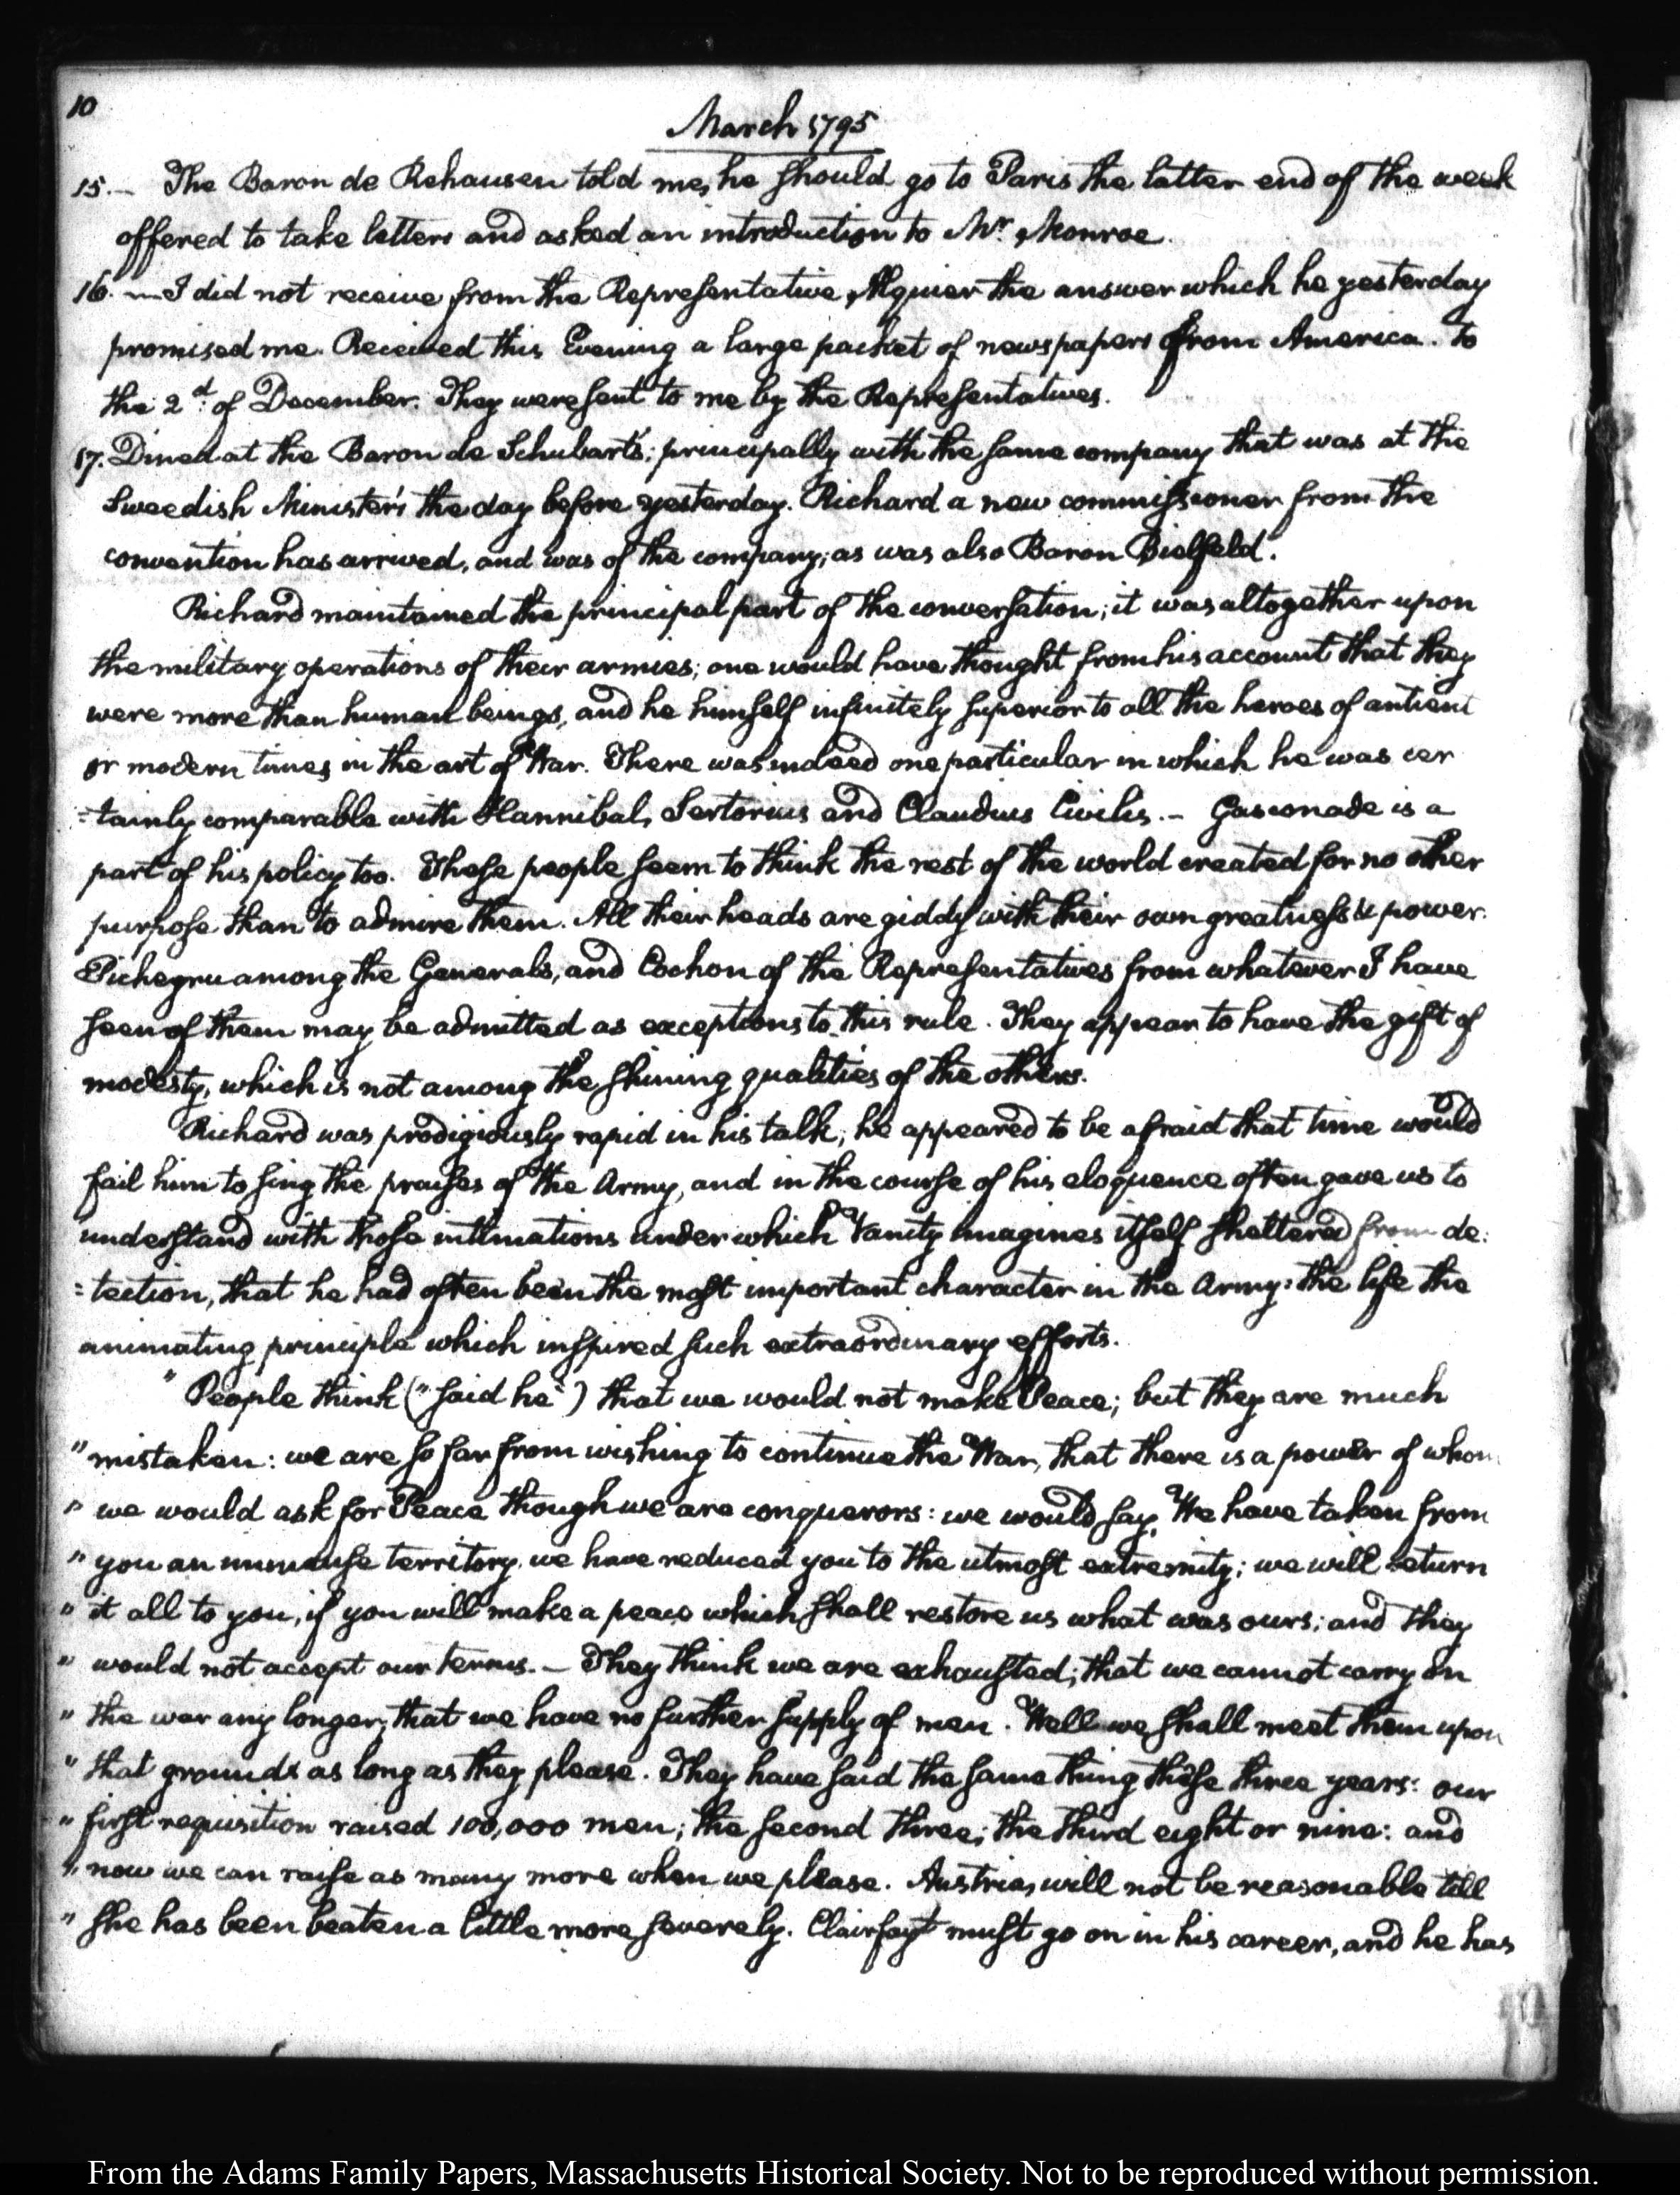 10
March 1795
15.— The Baron de Rehausen told me, he should go to Paris the latter end of the week
offered to take letters and asked an introduction to Mr. Monroe.
16.— I did not receive from the Representative Alquier the answer which he yesterday
promised me. Received this Evening a large packet of newspapers from America. To
the 2d. of December. They were sent to me by the Representatives.
17. Dined at the Baron de Schubart's; principally with the same company that was at the
Sweedish Minister's the day before yesterday. Richard a new commissioner from the
convention has arrived, and was of the company; as was also Baron Bielfeld.
Richard maintained the principal part of the conversation; it was altogether upon
the military operations of their armies; one would have thought from his account that they
were more than human beings, and he himself infinitely superior to all the heroes of antient
or modern times in the art of War. There was indeed one particular in which he was cer
=tainly comparable with Hannibal, Sertorius and Claudius Civilis.— Gasconade is a
part of his policy too. These people seem to think the rest of the world created for no other
purpose than to admire them. All their heads are giddy with their own greatness & power.
Pichegru among the Generals, and Cochon of the Representatives from whatever I have
seen of them may be admitted as exceptions to this rule. They appear to have the gift of
modesty, which is not among the shining qualities of the others.
Richard was prodigiously rapid in his talk; he appeared to be afraid that time would
fail him to sing the praises of the Army, and in the course of his eloquence often gave us to
understand with those intimations under which Vanity imagines itself sheltered from de=
=tection, that he had often been the most important character in the Army: the life the
animating principle which inspired such extraordinary efforts.
" People think (" said he ") that we would not make Peace; but they are much
" mistaken: we are so far from wishing to continue the War, that there is a power of whom
" we would ask for Peace though we are conquerors: we would say, We have taken from
" you an immense territory, we have reduced you to the utmost extremity; we will return
" it all to you, if you will make a peace which shall restore us what was ours; and they
" would not accept our terms.— They think we are exhausted; that we cannot carry on
" the war any longer, that we have no further supply of men. Well we shall meet them upon
" that grounds as long as they please. They have said the same thing these three years: our
" first requisition raised 100,000 men; the second three; the third eight or nine: and
" now we can raise as many more when we please. Austria, will not be reasonable till
" she has been beaten a little more severely. Clairfayt must go on in his career, and he has
From the Adams Family Papers, Massachusetts Historical Society. Not to be reproduced without permission.